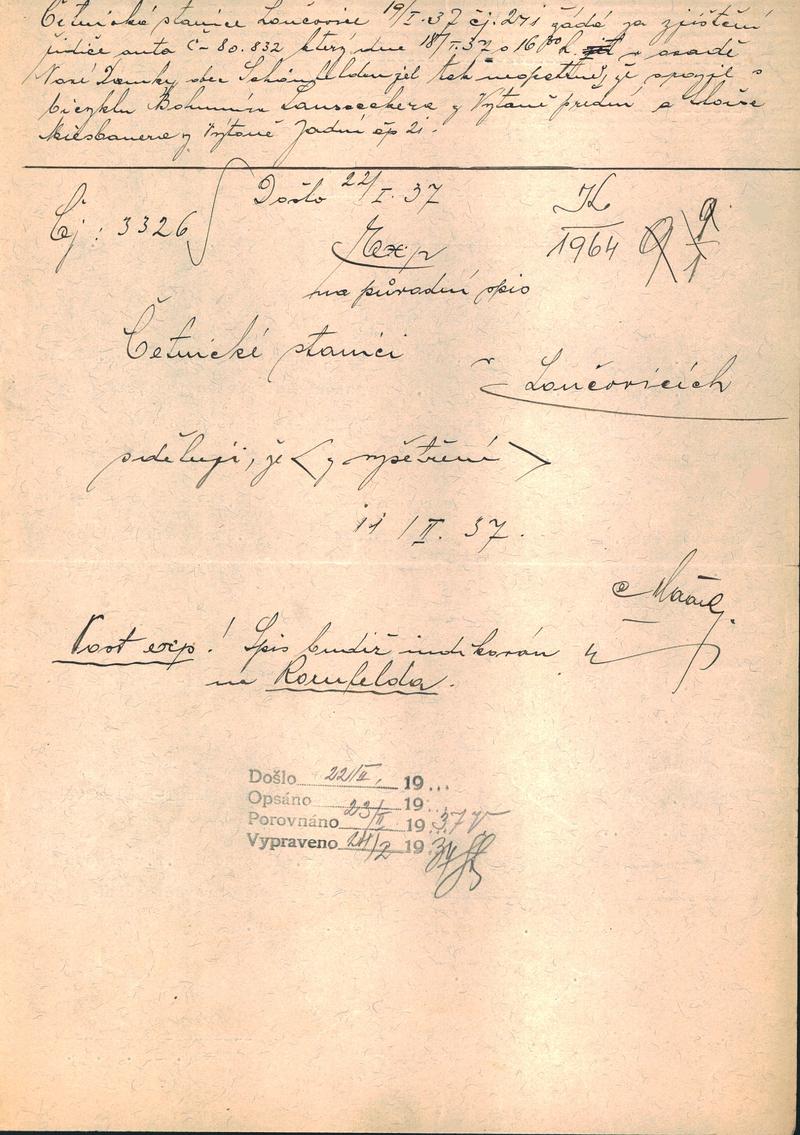 Četnická stanice Loučovice 19/I.37 čj. 271 žádá za zjištění
řidiče auta Č-80.832 který dne 18/I.37 o 16 00 h. v osadě
Nové Domky obec Schönfelden jel tak neopatrně, že
bicyklu Bohumíra y Vytoně přední a
y Vytoně Zadní čp 21.
Čj: 3326
Došlo 22/I. 37
K
1964
9
1
na původní spis
Četnické stanici
v Loučovicích
sděluji, že < z vyšetření >
11/II. 37.
Post exp! Spis budiž indikován
na Rornfelda.
Došlo 22/II. 19...
Opsáno 19...
Porovnáno 23/II 19 37
Vypraveno 24/2 19 37